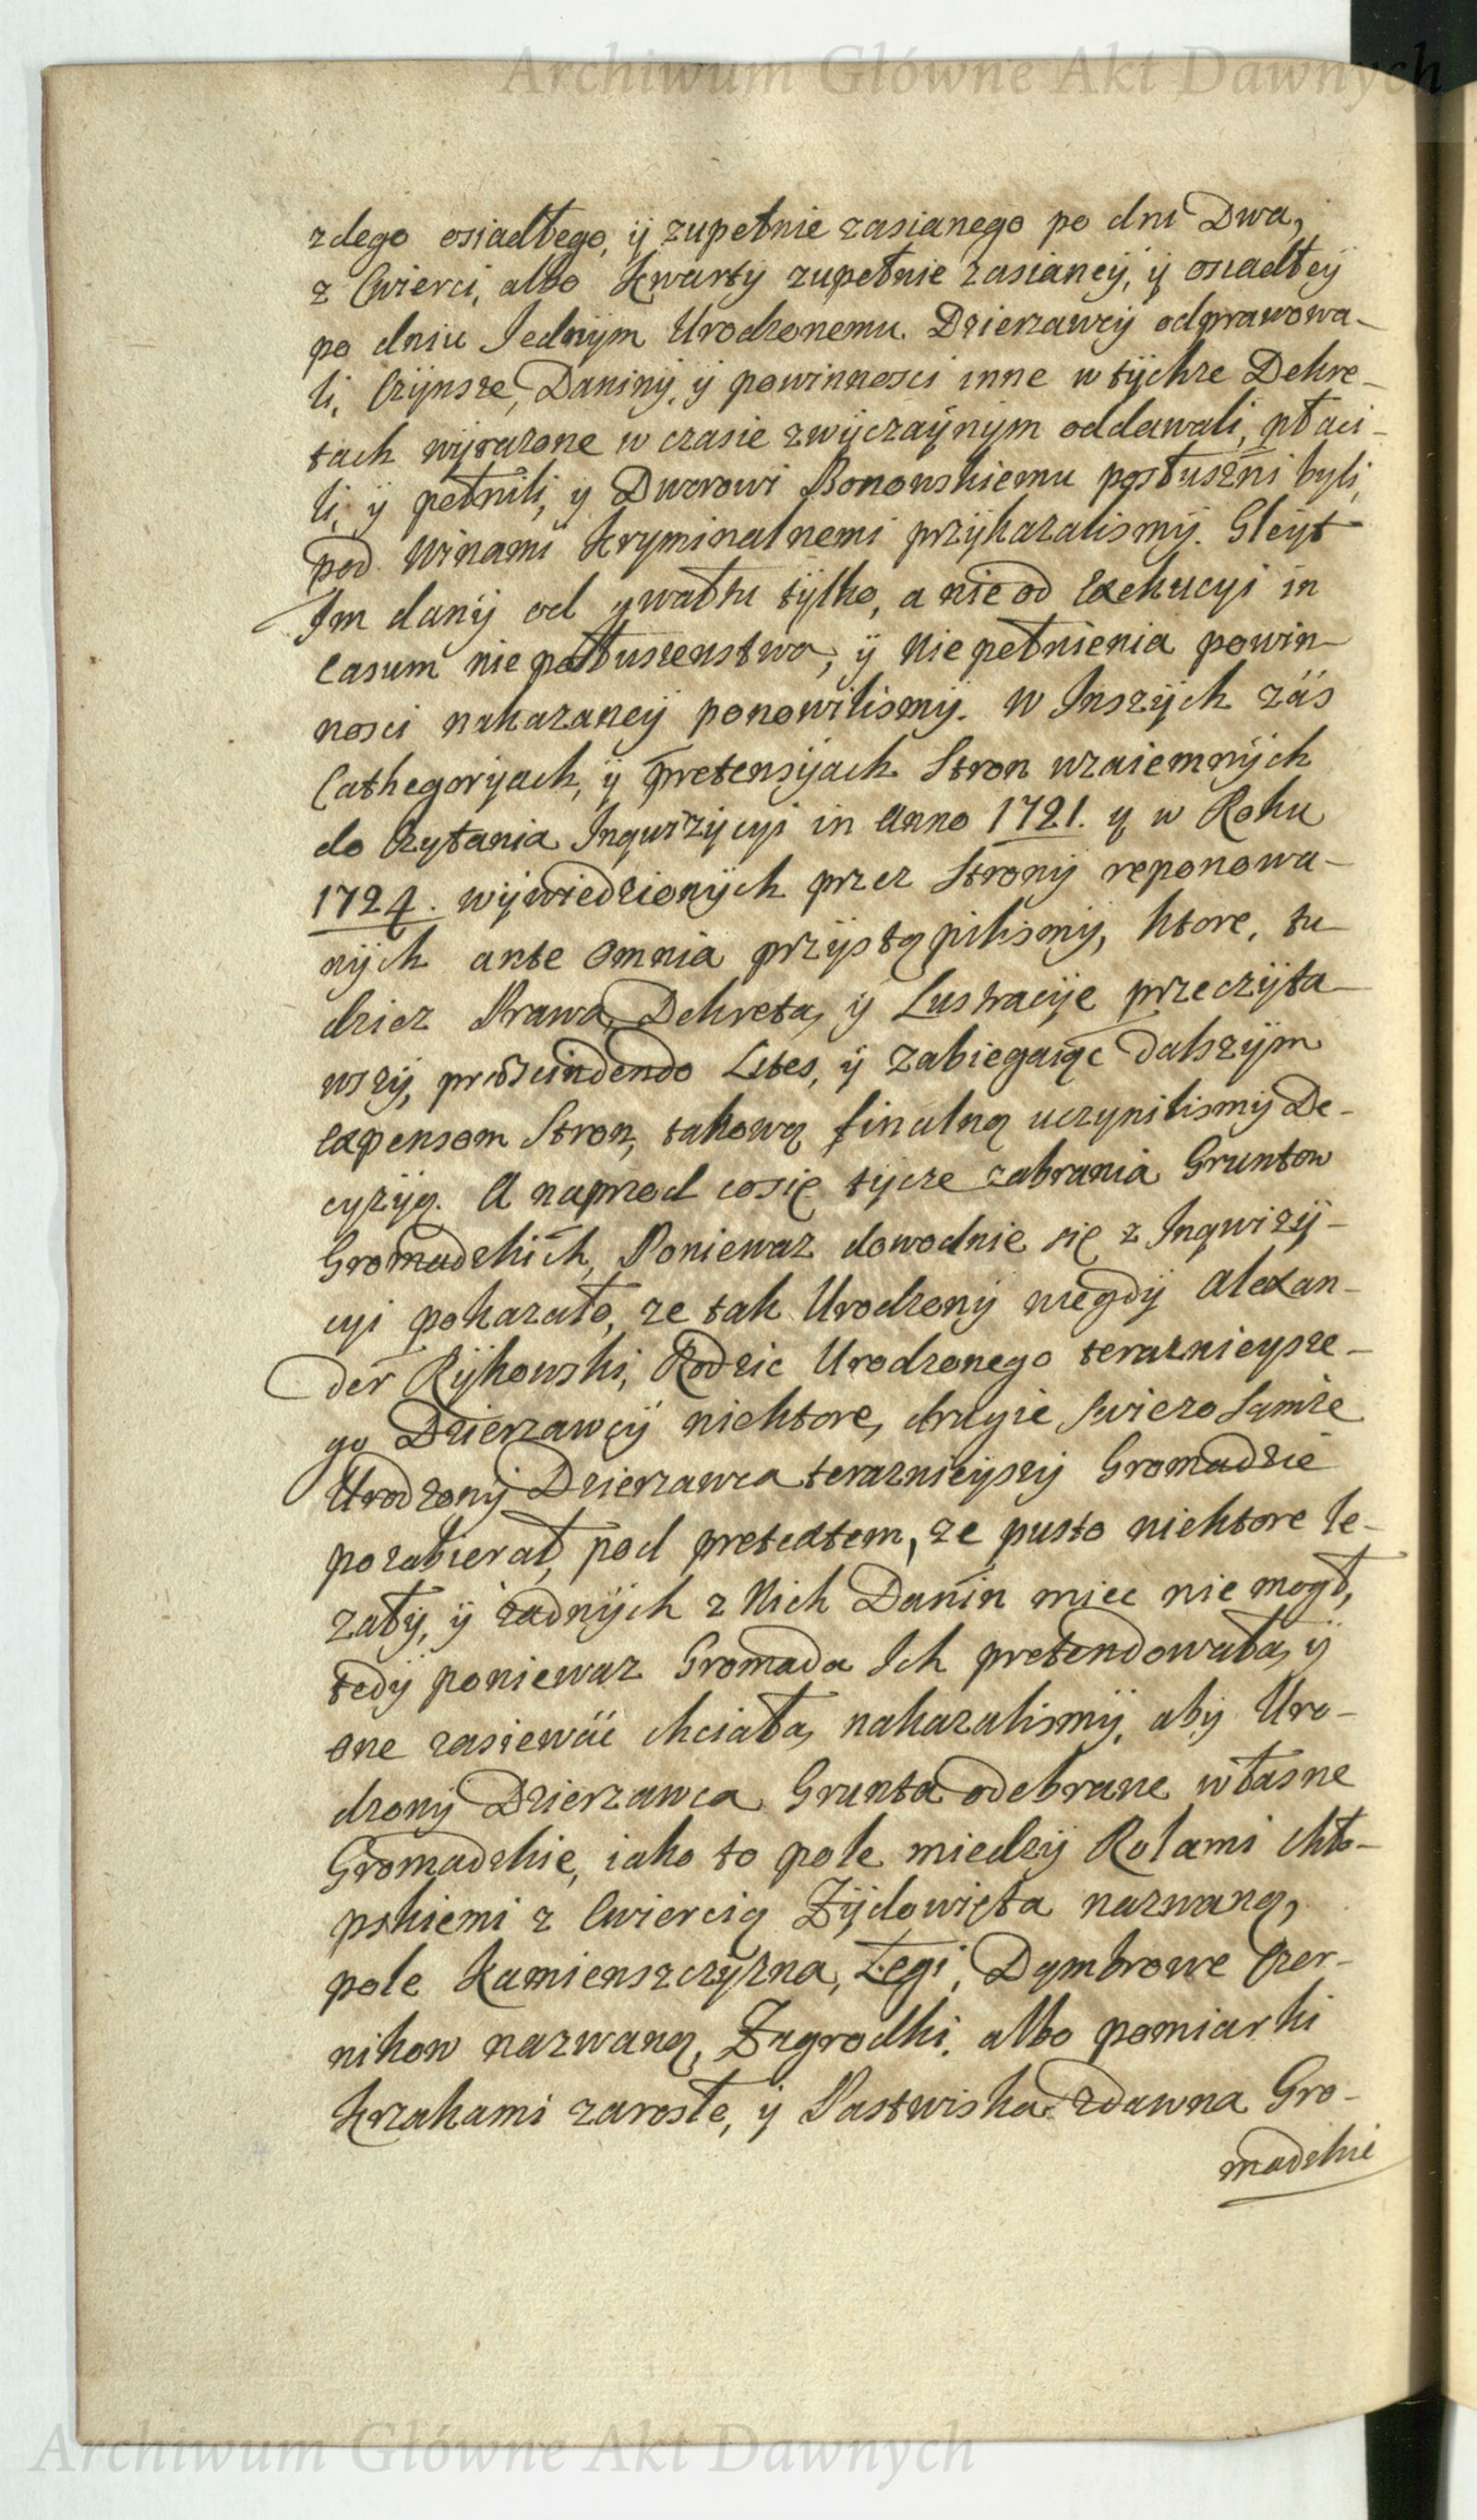 Archiwum Główne Akt Dawnych
zdego osiadłego, ÿ zupełnie zasianego po dni Dwa,
z Cwierci, albo Kwartÿ zupełnie zasianeÿ, ÿ osiadłeÿ
po dniu Jednÿm Urodzonemu Dzierzawcÿ odprawowa-
li, Czÿnsze, Daninÿ, ÿ powinnosci inne w tÿchze Dekre-
tach wÿrazone w czasie zwÿczaÿnÿm oddawali, płaci-
li, ÿ pełnili, y Dworowi Bonowskiemu posłuszni byli,
pod Winami Kryminalnemi przÿkazalismÿ. Gleÿt
Im danÿ od gwałtu tÿlko, a nie od Exekucyi in
Casum nieposłuszenstwa, ÿ Nie pełnienia powin-
nosci nakazaneÿ ponowilismÿ. W Inszÿch zás
Cathegorÿach, ÿ pretensÿach Stron wzaiemnÿch
do Czytania Inqwizÿcyi in Anno 1721. y w Roku
1724. wÿwiedzionÿch przez Stronÿ reponowa-
nÿch ante omnia przÿstąpilismÿ, ktore, tu-
dziez Prawa, Dekreta, ÿ Lustracÿe przeczÿta-
wszÿ, proscindendo Lites, ÿ zabiegaiąc dalszÿm
expensom Stron, takową finalną uczynilismÿ De-
cyzÿą. A naprzod cosię tÿcze zabrania Gruntow
Gromadzkich, Poniewaz dowodnie się z Inqwizÿ-
cyi pokazało, ze tak Urodzonÿ niegdÿ Alexan-
der Rÿkowski, Rodzic Urodzonego teraznieysze-
go Dzierzawcÿ niektore, drugie swiezo Samze
Urodzonÿ Dzierzawca terazniеÿszÿ Gromadzie
pozabierał, pod pretextem, ze pusto niektore le-
załÿ, ÿ zadnÿch z Nich Danin miec nie mogł,
tedÿ poniewaz Gromada Ich pretendowała, ÿ
one zasiewác chciała, nakazalismÿ, abÿ Uro-
dzonÿ Dzierzawca Grunta odebrane własne
Gromadzkie, iako to pole miedzÿ Rolami chło-
pskiemi z Cwiercią Zÿdowięta nazwaną,
pole Kamienszczÿzna, Łegi, Dąmbrowe Czer-
nikow nazwaną, Zagrodki, albo pomiarki
Krzakami zarosłe, ÿ Pastwiska zdawna Gro-
madzkie
Archiwum Główne Akt Dawnych